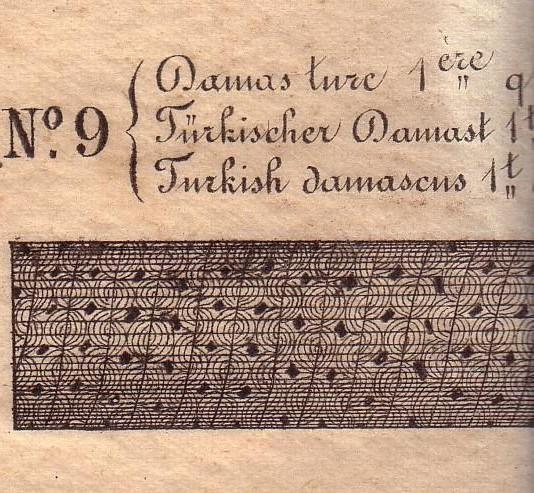 Nº. 9
Damas turc 1ère q
Türkischer Damast 1t
Turkish damascus 1t